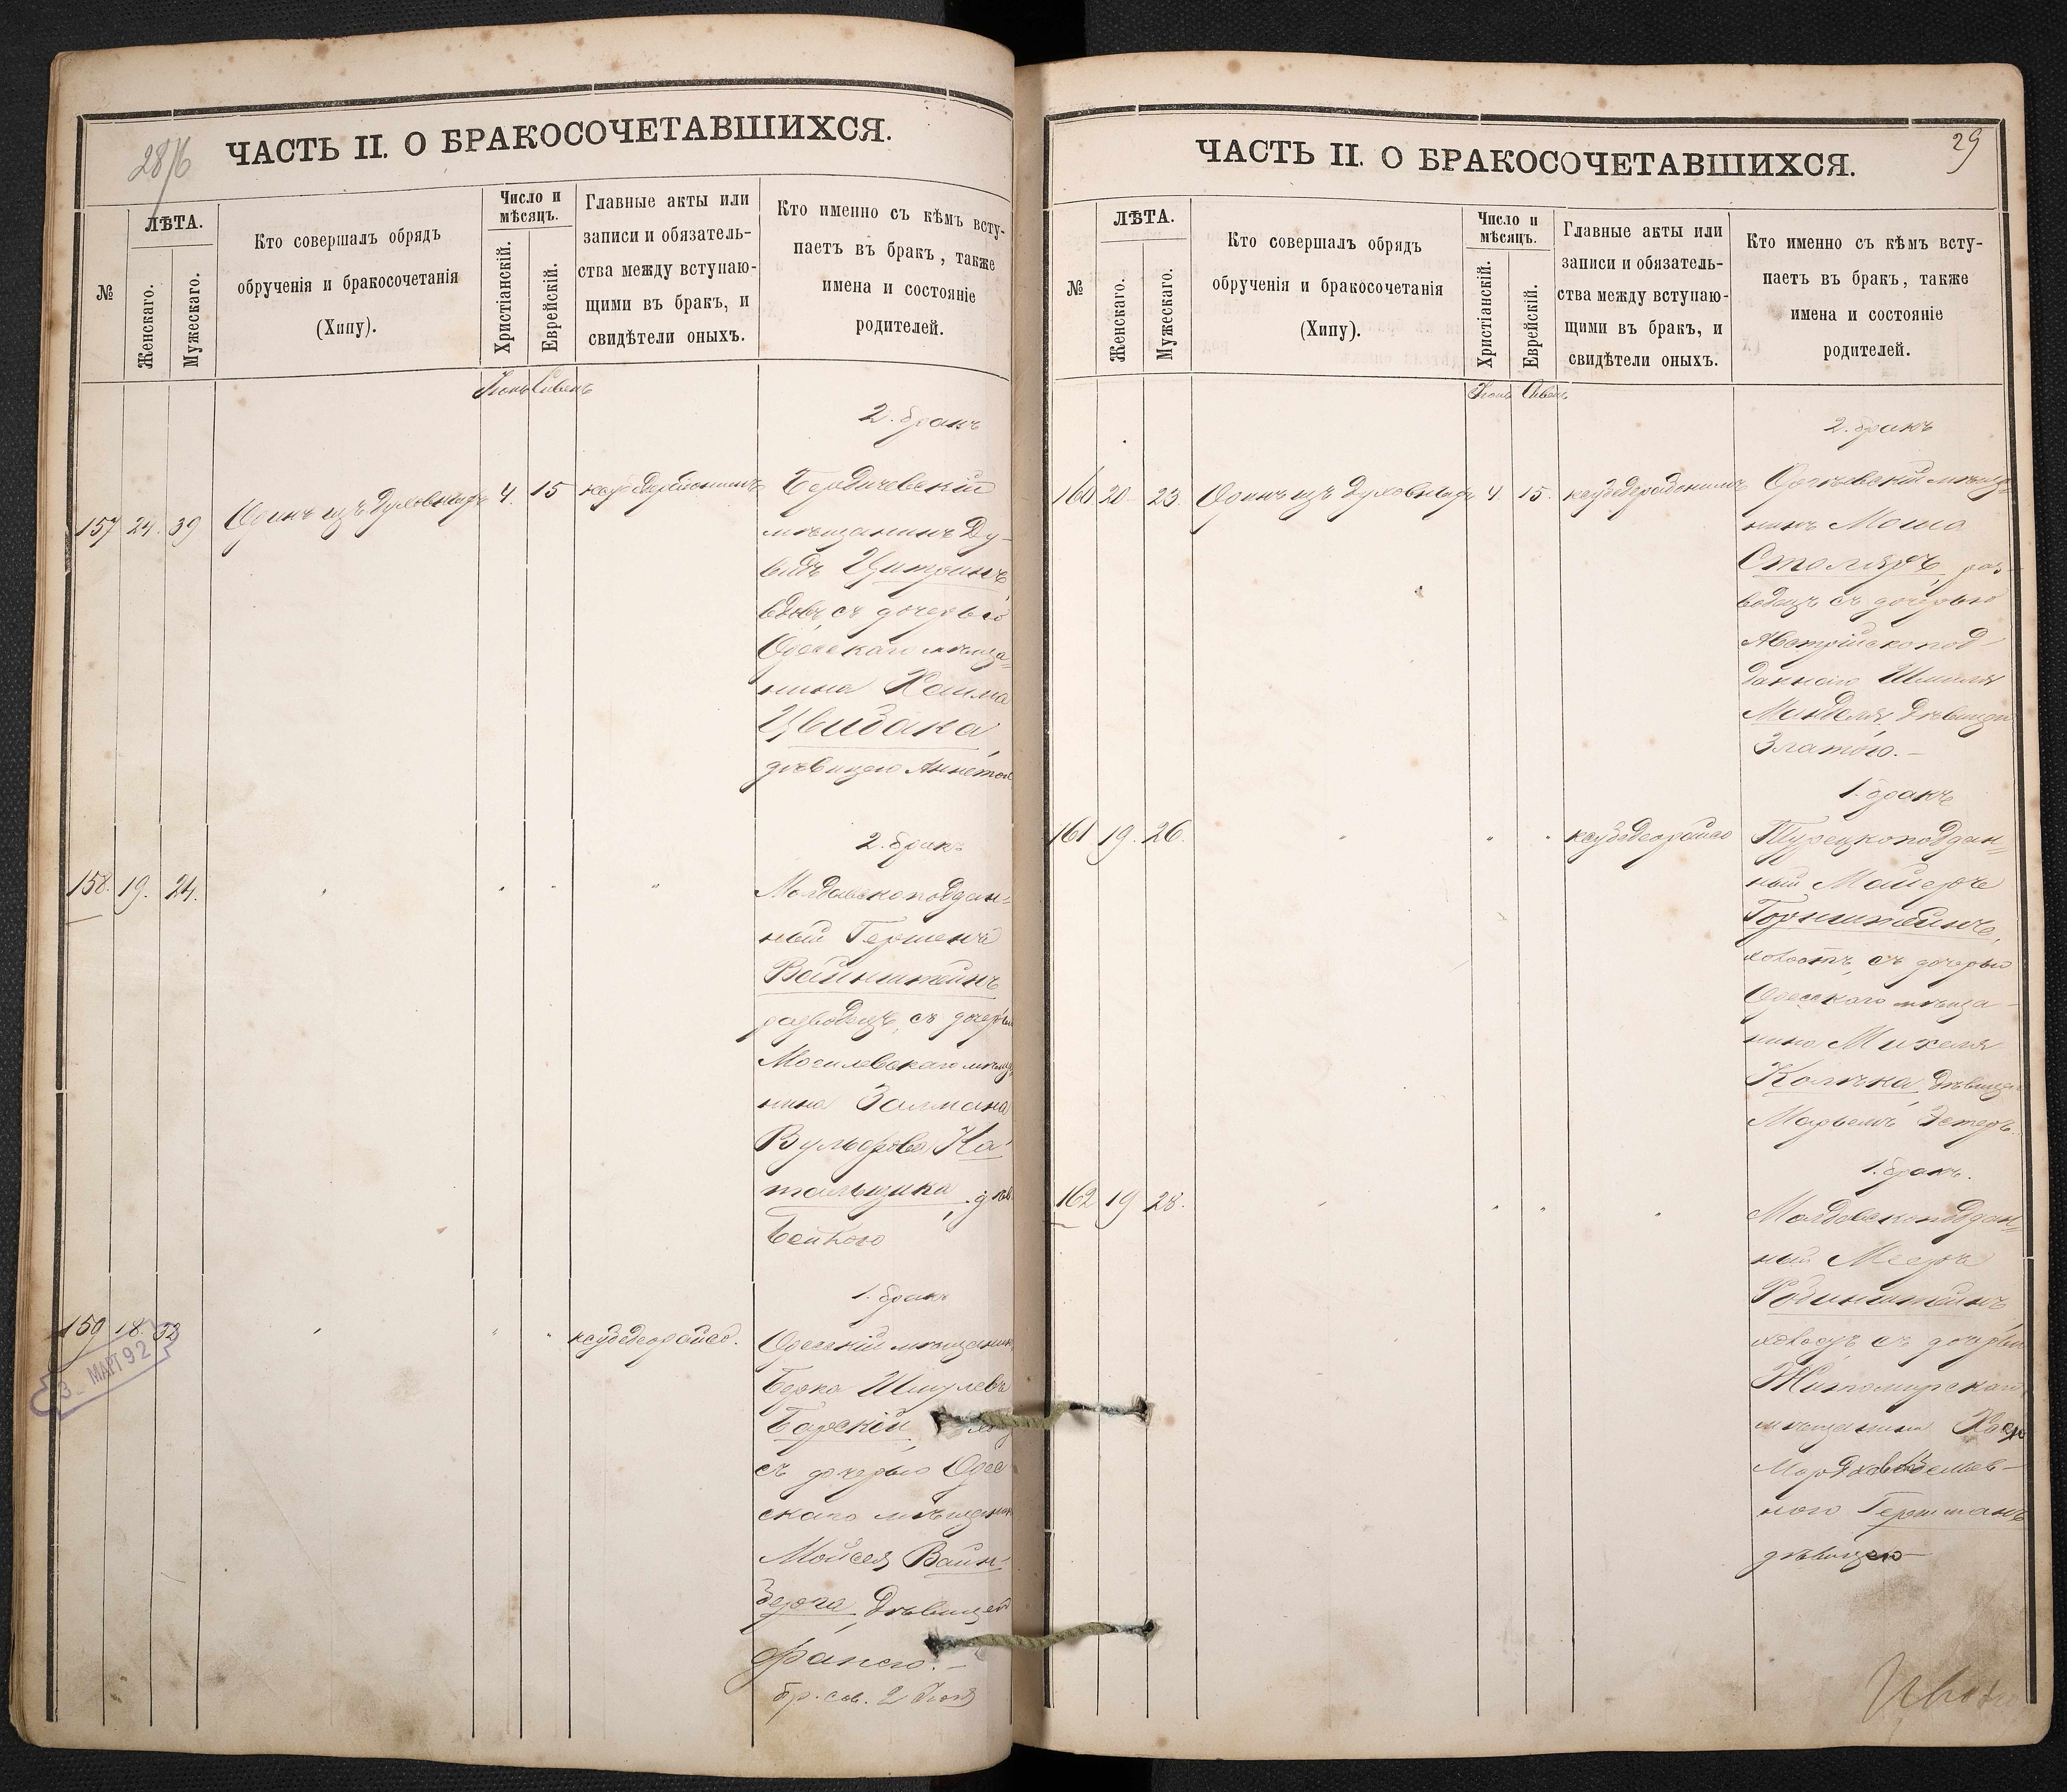 28/6
ЧАСТЬ II. О БРАКОСОЧЕТАВШИХСЯ.
№
ЛѢТА.
Женскаго.
Мужескаго.
Кто совершалъ обрядъ
обрученія и бракосочетанія
(Хипу).
Число и
мѣсяцъ.
Христіанскій.
Еврейскій.
Главные акты или
записи и обязатель-
ства между вступаю-
щими въ бракъ, и
свидѣтели оныхъ.
Кто именно съ кѣмъ всту-
паетъ въ бракъ, также
имена и состояніе
родителей.
Іюнь Сивень
2. бракъ
157 24. 39 Одинъ изъ Духовныхъ 4. 15 Бердичевскій
мѣщанинъ Ду-
видъ Цитринъ,
вдовъ, съ дочерью
Одесскаго мѣща=
нина Хаима
Цвибака,
дѣвицею Аннетою
2. бракъ
158. 19. 24. " " " " Молдавскоподдан=
ный Гершенъ
Вайнштейнъ
разводецъ, съ дочерью
Могилевскаго мѣща
нина Залмана
Вульфова Ка
тальщика, дѣв.
Бейлою
1. бракъ
159 18. 33 " " " ксубедеорайсо. Одесскій мѣщанинъ
Берко Шмулевъ
Барскій,
съ дочерью Одес
скаго мѣщанина
Мойсея Вайн-
берга дѣвицей
Фанею.-
бр. сов. 2 Іюня
3_ МАРТ 92
29
ЧАСТЬ II. О БРАКОСОЧЕТАВШИХСЯ.
№
ЛѢТА.
Женскаго.
Мужескаго.
Кто совершалъ обрядъ
обрученія и бракосочетанія
(Хипу).
Число и
мѣсяцъ.
Христіанскій.
Еврейскій.
Главные акты или
записи и обязатель-
ства между вступаю-
щими въ бракъ, и
свидѣтели оныхъ.
Кто именно съ кѣмъ всту-
паетъ въ бракъ, также
имена и состояніе
родителей.
Іюнь Сивень
2. бракъ
160 20 23. Одинъ изъ Духовныхъ 4. 15. ксубедерабонимъ Оргѣевскій мѣща=
нинъ Моша
Столяръ, раз-
водецъ съ дочерью
Австрійскопод-
даннаго Шмиля
Минделя дѣвицею
Златою.-
1. бракъ
161 19. 26. " " " ксубедеорайсо Турецкоподдан=
ный Майеръ
Горнштейнъ,
холостъ, съ дочерью
Одесскаго мѣща-
нина Михеля
Колѣка, дѣвицею
Марьемъ Эстеръ.
1. бракъ.
162 19 28. " " " " Молдавскоподдан=
ный Мееръ
Рубинштейнъ
холостъ съ дочерью
Житомирскаго
мѣщанина
ною Гершманъ
дѣвицею